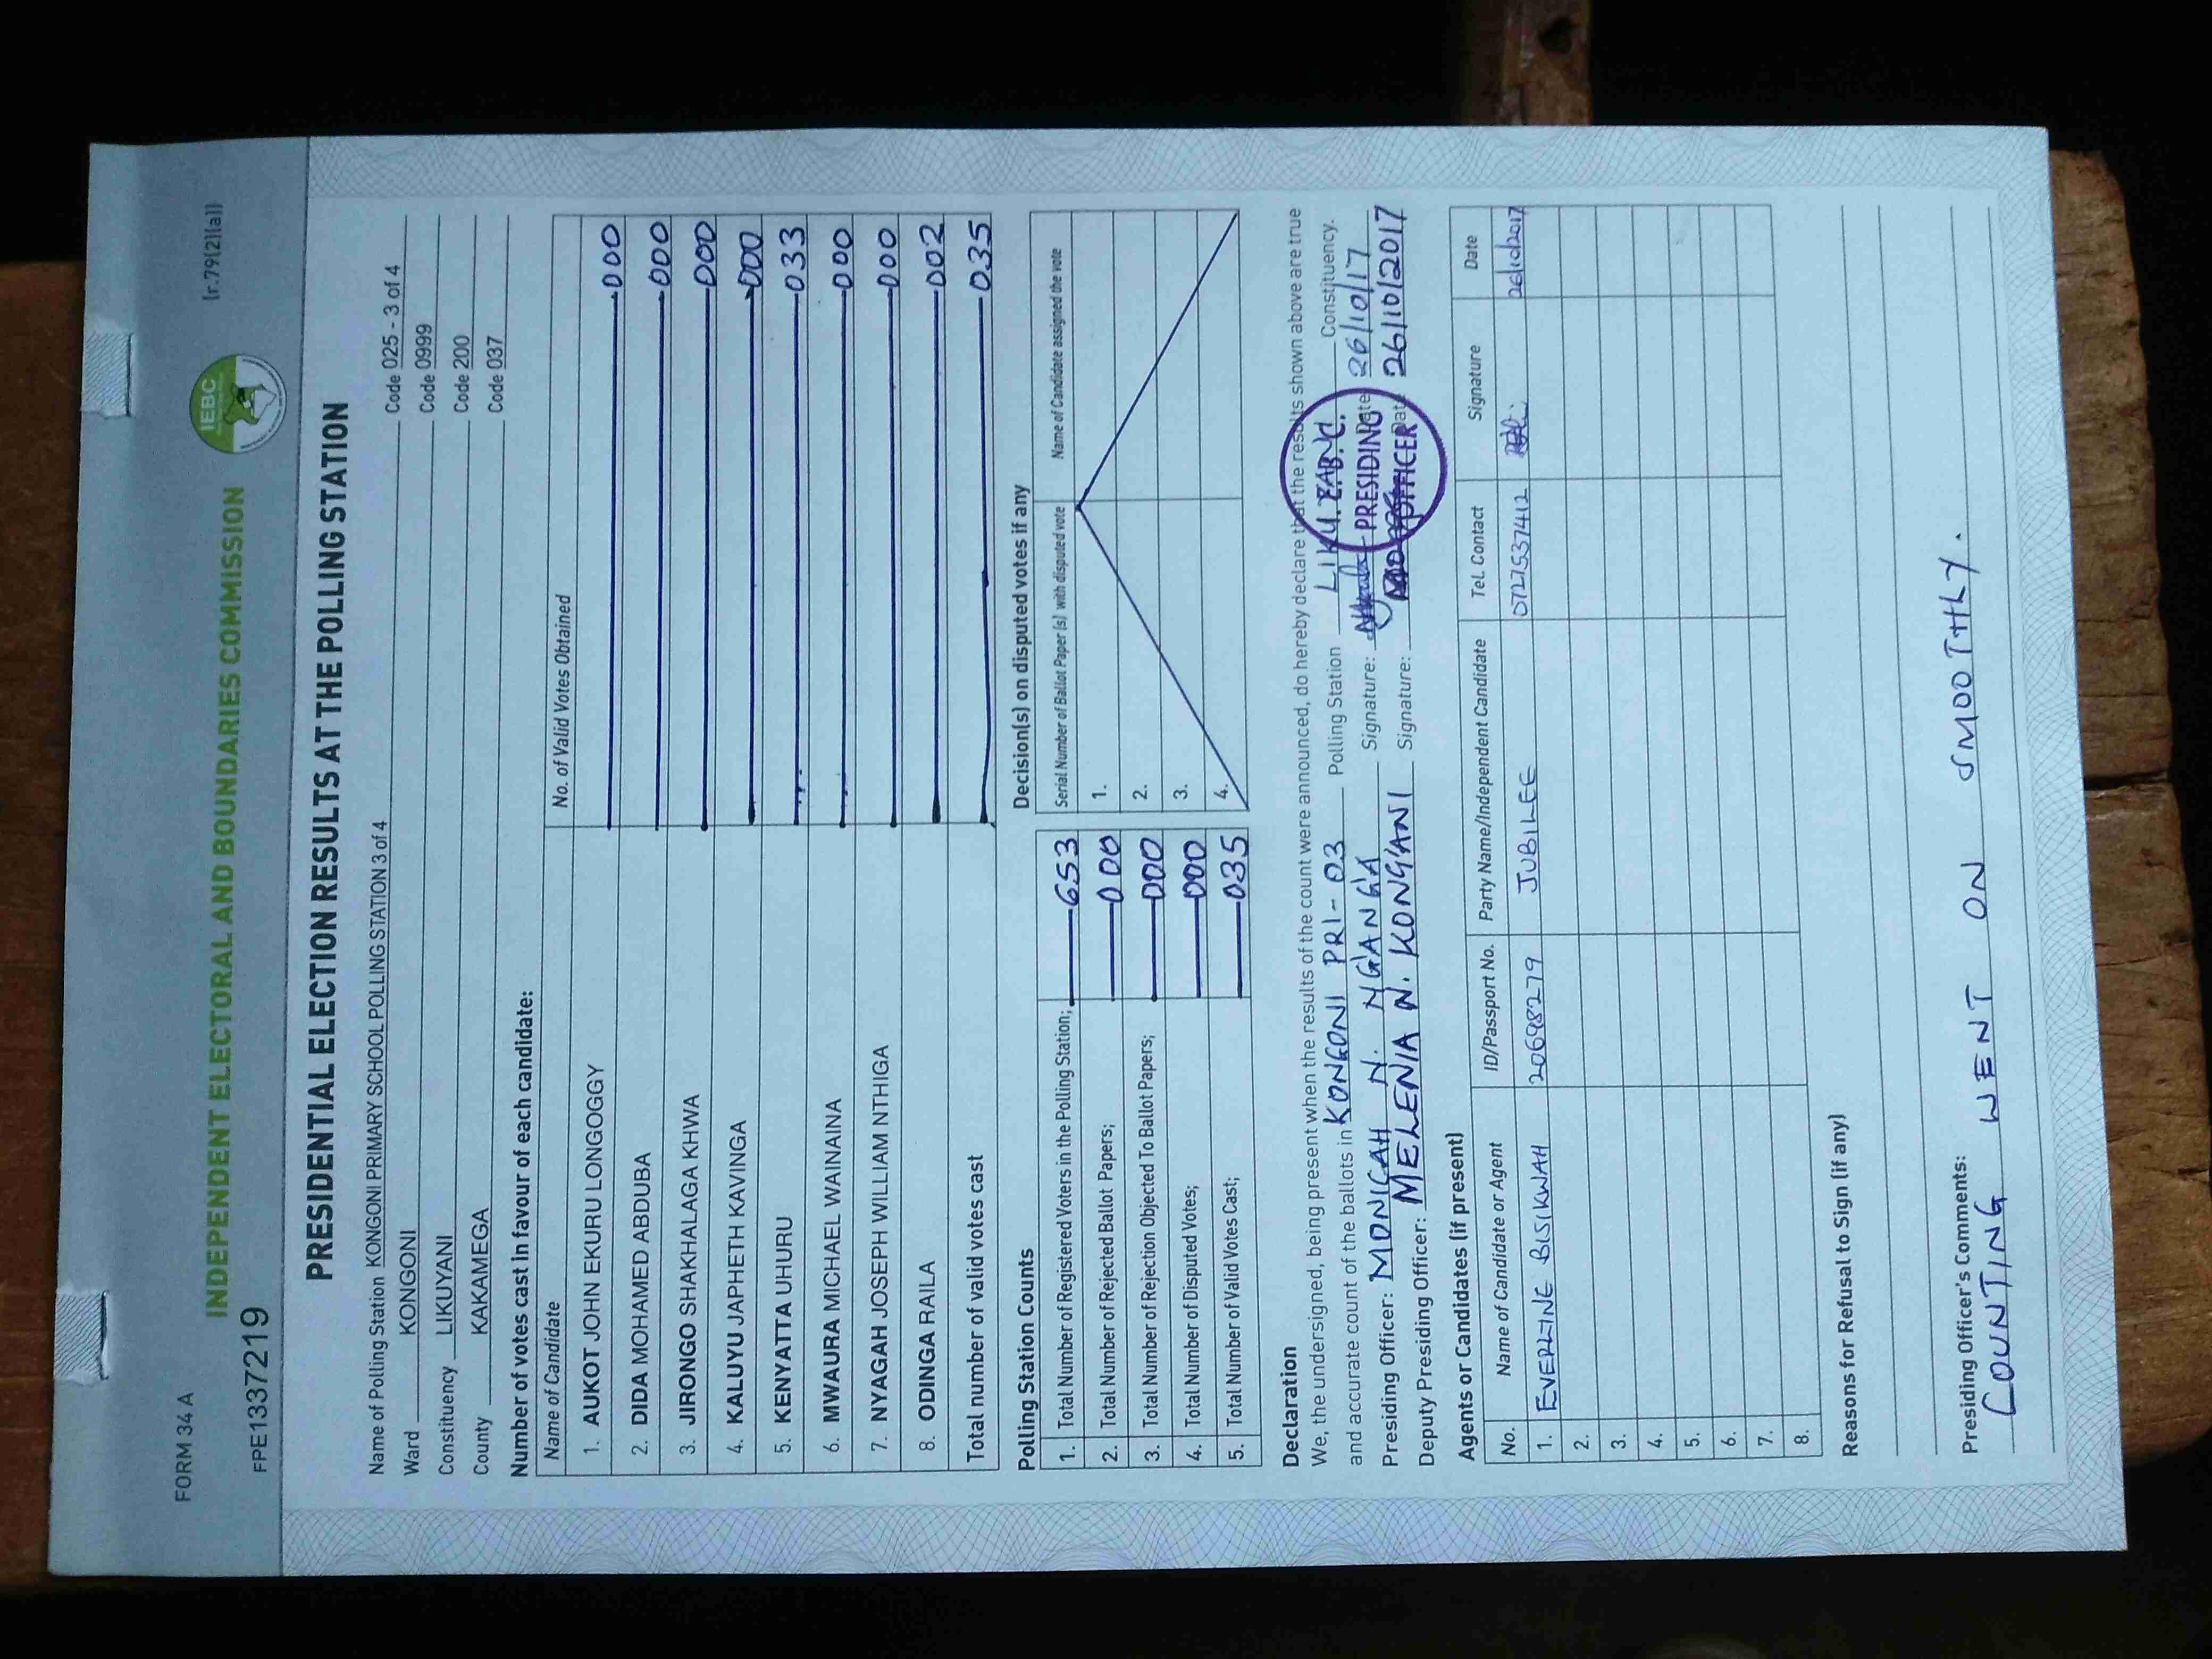 FORM 34 A
[r.79(2)(a)]
IEBC
INDEPENDENT ELECTORAL AND BOUNDARIES COMMISSION
FPE1337219
PRESIDENTIAL ELECTION RESULTS AT THE POLLING STATION
Name of Polling Station KONGONI PRIMARY SCHOOL POLLING STATION 3 of 4 Code 025 - 3 of 4
Ward KONGONI Code 0999
Constituency LIKUYANI Code 200
County KAKAMEGA Code 037
Number of votes cast in favour of each candidate:
Name of Candidate No. of Valid Votes Obtained
1. AUKOT JOHN EKURU LONGOGGY 000
2. DIDA MOHAMED ABDUBA 000
3. JIRONGO SHAKHALAGA KHWA 000
4. KALUYU JAPHETH KAVINGA 000
5. KENYATTA UHURU 033
6. MWAURA MICHAEL WAINAINA 000
7. NYAGAH JOSEPH WILLIAM NTHIGA 000
8. ODINGA RAILA 002
Total number of valid votes cast 035
Polling Station Counts
1. Total Number of Registered Voters in the Polling Station; 653
2. Total Number of Rejected Ballot Papers; 000
3. Total Number of Rejection Objected To Ballot Papers; 000
4. Total Number of Disputed Votes; 000
5. Total Number of Valid Votes Cast; 035
Decision(s) on disputed votes if any
Serial Number of Ballot Paper (s) with disputed vote Name of Candidate assigned the vote
1.
2.
3.
4.
Declaration
We, the undersigned, being present when the results of the count were announced, do hereby declare that the results shown above are true
and accurate count of the ballots in KONGONI PRI - 03 Polling Station Constituency.
Presiding Officer: MONICAH N. NG'ANG'A Signature: Date 26/10/17
Deputy Presiding Officer: MELENIA N. KONG'ANI Signature: Date 26/10/2017
PRESIDING
OFFICER
Agents or Candidates (if present)
No. Name of Candidate or Agent ID/Passport No. Party Name/Independent Candidate Tel. Contact Signature Date
1. EVERLINE BISIKWAH 20698279 JUBILEE 0727537412 26/10/2017
2.
3.
4.
5.
6.
7.
8.
Reasons for Refusal to Sign (if any)
Presiding Officer's Comments:
COUNTING WENT ON SMOOTHLY.